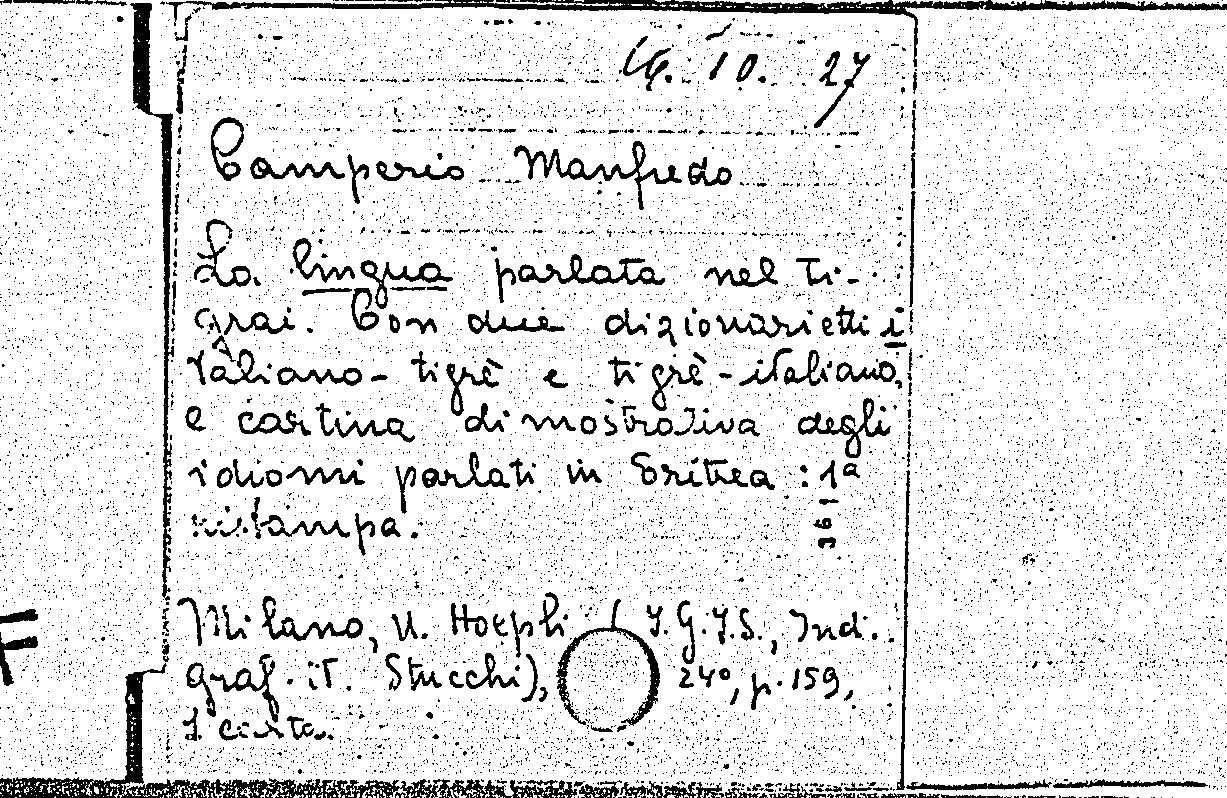 16. 10. 27
Camperio Manfredo
La lingua parlata nel ti-
grai. Con due dizionarietti i
taliano-tigrè e tigrè-italiano,
e cartina dimostrativa degli
idiomi parlati in Eritrea : 1ª
ristampa.
1936
Milano, U. Hoepli (I.G.I.S., Ind.
graf. it. Stucchi), 24º, p. 159,
1 carta.
F